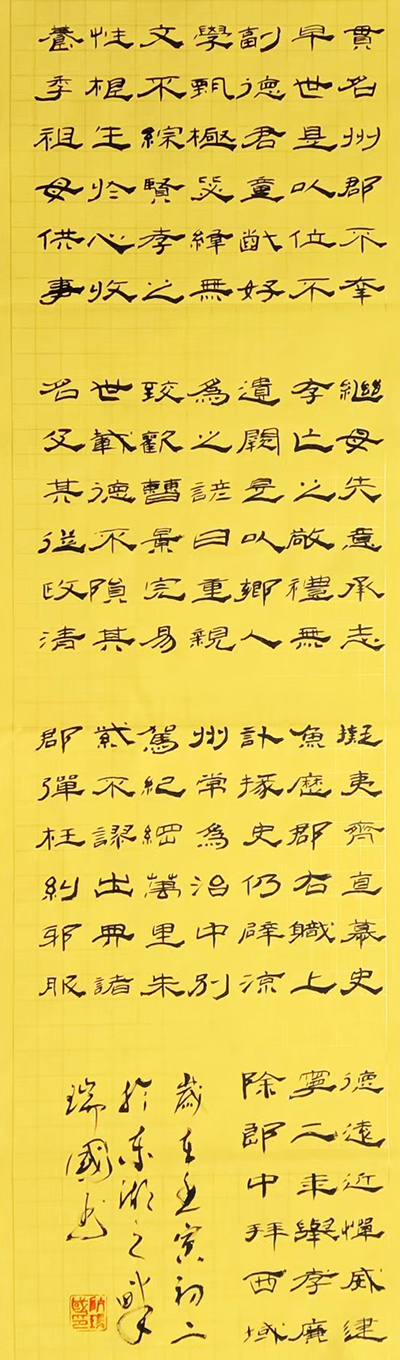 貫名州郡不幸
早世是以位不
副德君童齔好
學甄極毖緯無
文不綜賢孝之
性根生於心收
養季祖母供事
繼母先意承志
存亡之敬禮無
遺闕是以鄉人
為之諺曰重親
致歡曹景完易
世載德不隕其
名及其從政清
擬夷齊直慕史
魚歷郡右職上
計掾史仍辟涼
州常為治中別
駕紀綱萬里朱
紫不謬出典諸
郡彈枉糾邪服
德遠近憚威建
寧二年舉孝廉
除郎中拜西域
歲在壬寅初二
於東湖之畔
瑞國書